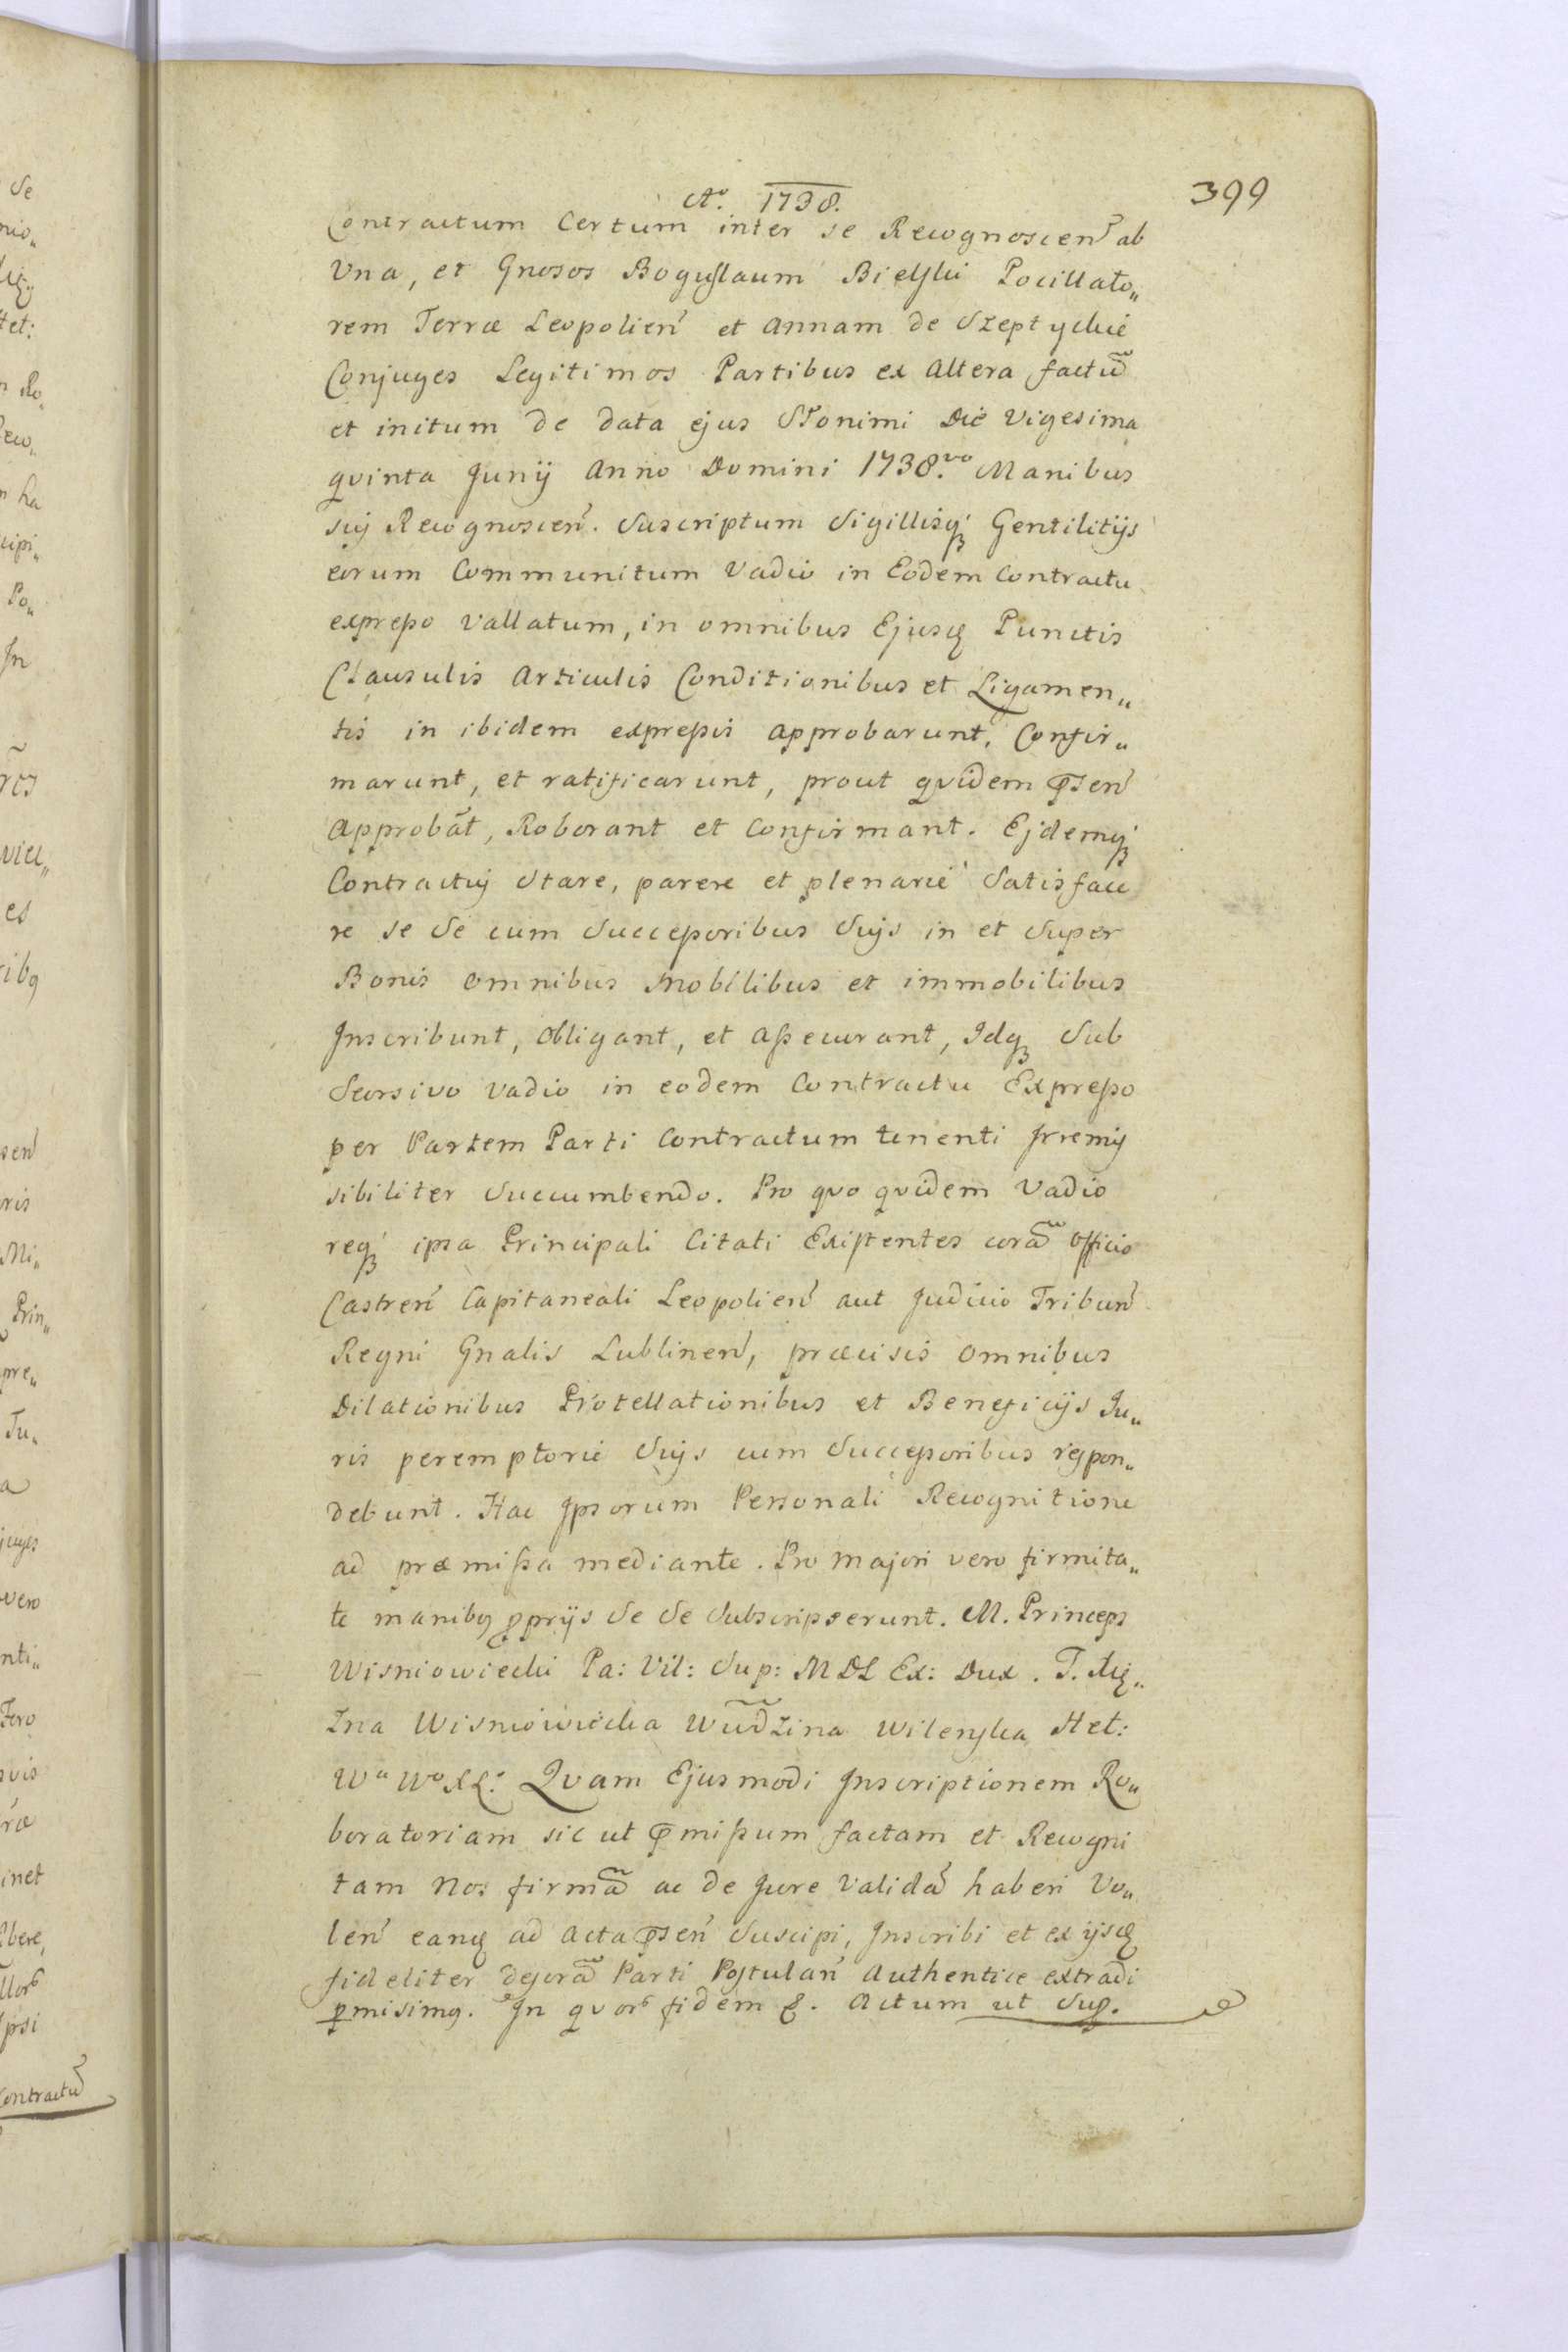 Ao. 1738.
399
Contractum Certum inter se Recognoscen̄ ab
Vna, et Gnosos Boguslaum Bielski Pocillato„
rem Terræ Leopolien̄ et Annam de Szeptyckie
Conjuges Legitimos Partibus ex Altera factū
et initum de data ejus Słonimi Die Vigesima
qvinta Junij Anno Domini 1738.vo Manibus
suis Recognoscen̄. Suscriptum Sigillisq; Gentilitijs
eorum Communitum Vadio in Eodem Contractu
expresso Vallatum, in omnibus Ejusq; Punctis
Clausulis Articulis Conditionibus et Ligamen„
tis in ibidem expressis approbarunt, Confir„
marunt, et ratificarunt, prout qvidem p̄sen̄
Approbāt, Roborant et Confirmant. Ejdemq;
Contractui Stare, parere et plenarie Satisface
re se Se cum Successoribus Suijs in et Super
Bonis omnibus Mobilibus et immobilibus
Inscribunt, obligant, et assecurant, Idq; Sub
Seorsivo Vadio in eodem Contractu Expresso
per Partem Parti Contractum tenenti Irremis
sibiliter Succumbendo. Pro qvo qvidem Vadio
req; ipsa Principali Citati Existentes corā officio
Castren̄ Capitaneali Leopolien̄ aut Judicio Tribun̄
Regni Gnalis Lublinen̄, præcisis omnibus
Dilationibus Protellationibus et Beneficijs Ju„
ris peremptorie Suijs cum Successoribus respon„
debunt. Hac Ipsorum Personali Recognitione
ad præmissa mediante. Pro majori vero firmita„
te manibq; p̱prijs Se Se Subscripserunt. M. Princeps
Wisniowiecki Pa: Vil: Sup: MDL Ex: Dux. T. Xię„
żna Wisniowiecka Wūdzina Wilenska Het:
Wa Wo XL: Qvam Ejusmodi Inscriptionem Ro„
boratoriam sic ut p̄missum factam et Recogni
tam Nos firmā ac de Jure Validā haberi Vo„
len̄ eanq; ad Acta p̄sen̄ Suscipi, Inscribi et ex ijsq;
fideliter desorā Parti Postulan̄ Authentice extradi
p̱misimq. In qvor fidem &. Actum ut Sup.